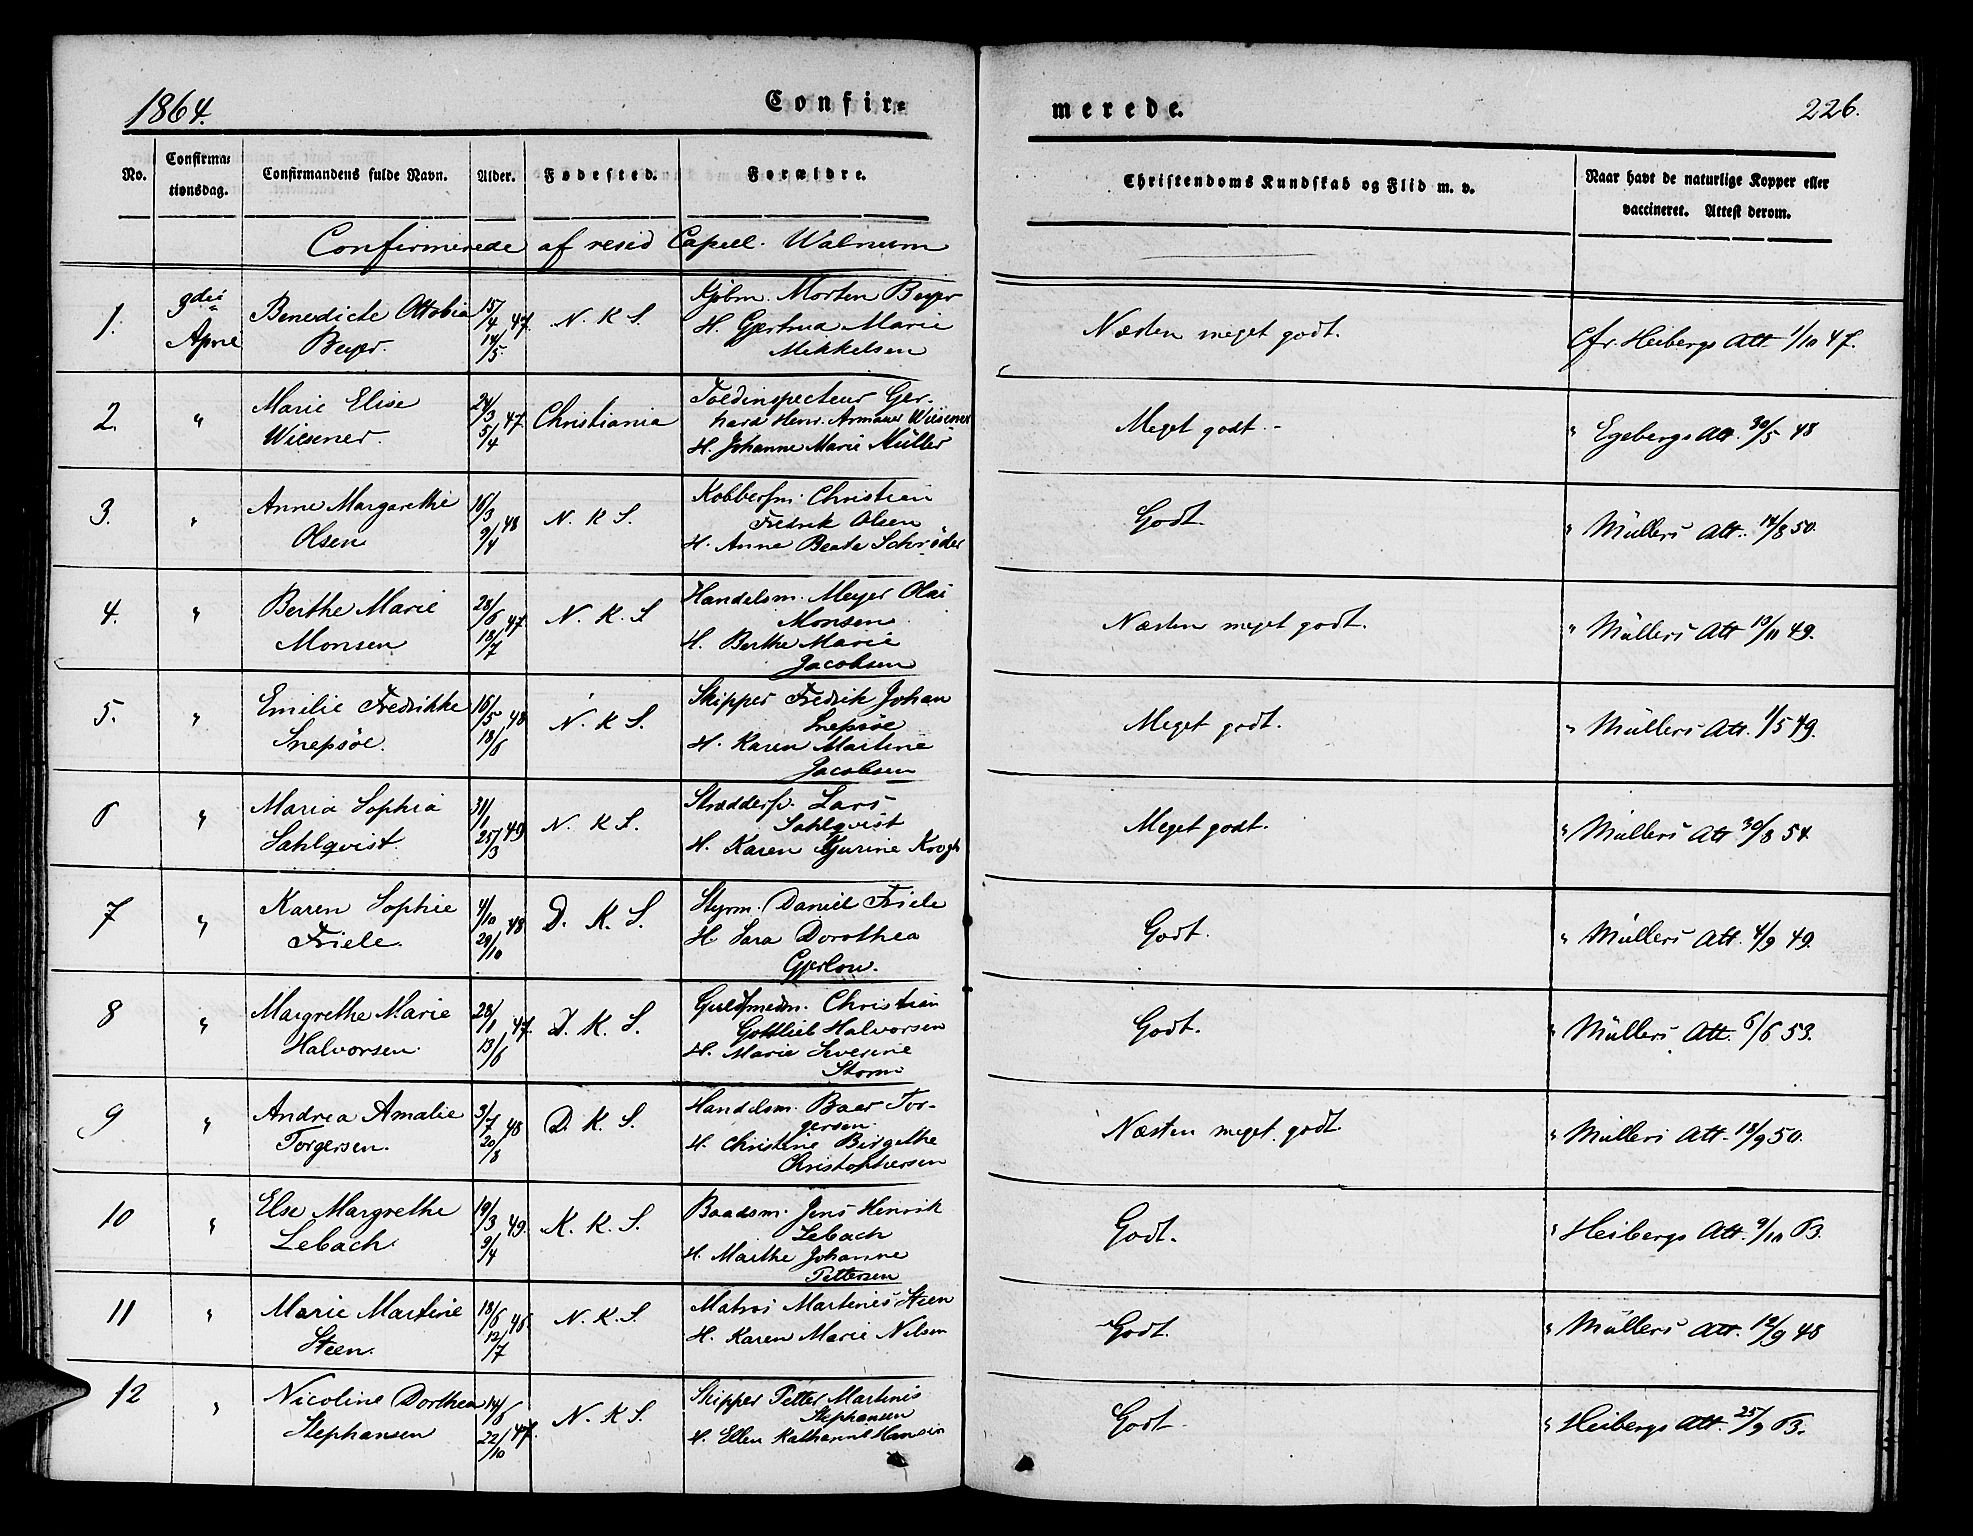 1864.
Confir-
merede.
226.
No.
Confirma-
tionsdag.
Confirmandens fulde Navn.
Alder.
Fødested.
Forældre.
Christendoms Kundskab og Flid m. v.
Naar havt de naturlige Kopper eller
vaccineret. Attest derom.
Confirmerede af resid Capell. Walnum
1. 3die April Benedicte Ottobia Beyer. 15/4 47. 14/5 N. K. S. Kjøbm. Morten Beyer
H. Gjertrud Marie
Mikkelsen
Næsten meget godt. cfr. Heibergs Att 1/10 47.
2. " Marie Elise Wiesener. 24/3 47. 5/4 Christiania Toldinspecteur Ger-
hard Henr. Armauer Wiesener
H. Johanne Marie Müller
Meget godt. " Egebergs Att. 30/5 48
3. " Anne Margarethe Olsen 16/3 48 9/4 N. K. S. Kobbersm. Christian
Fredrik Olsen
H. Anne Beate Schrøder
Godt. " Müllers Att. 14/8 50.
4. " Berthe Marie Monsen 28/6 47. 18/7 N. K. S Handelsm. Meyer Olai
Monsen
H. Berthe Marie
Jacobsen
Næsten meget godt. " Müllers Att 13/11 49.
5. " Emilie Fredrikke Snepsøe. 16/5 48 18/6 N. K S. Skipper Fredrik Johan
Snepsøe
H. Karen Martine
Jacobsen
Meget godt. " Müllers Att. 1/5 49.
6 " Maria Sophia Sahlqvist 31/1 49 25/3 N. K S. Skræddersv. Lars
Sahlqvist
H. Karen Gurine Krogh
Meget godt. " Müllers Att 30/8 54
7 " Karen Sophie Friele. 4/10 48 29/10 D. K. S. Styrm. Daniel Friele
H. Sara Dorothea
Gjerlow.
Godt. " Müllers Att. 4/9 49.
8 " Margrethe Marie Halvorsen 28/1 47. 13/6 D. K. S. Guldsmedm. Christian
Gottlieb Halvorsen
H. Marie Severine
Storm
Godt. " Müllers Att. 6/6 53.
9 " Andrea Amalie Torgersen. 3/7 48 20/8 D. K. S. Handelsm. Baar Tor-
gersen
H. Christine Birgethe
Christophersen
Næsten meget godt. " Müllers Att. 18/9 50.
10 " Else Margrethe Lebach 19/3 49. 9/4 K. K. S. Baadsm. Jens Henrik
Lebach
H. Marthe Johanne
Pettersen
Godt. " Heibergs Att. 9/10 B.
11 " Marie Martine Steen. 18/6 48. 12/7 N. K. S Matros Martinies Steen
H. Karen Marie Nilsen
Godt. " Müllers Att. 12/9 48
12 " Nicoline Dorthea Stephansen 14/8 47. 22/10 N. K S. Skipper Petter Martinis
Stephansen
H. Ellen Katharine Hansen
Godt. " Heibergs Att. 25/9 B.